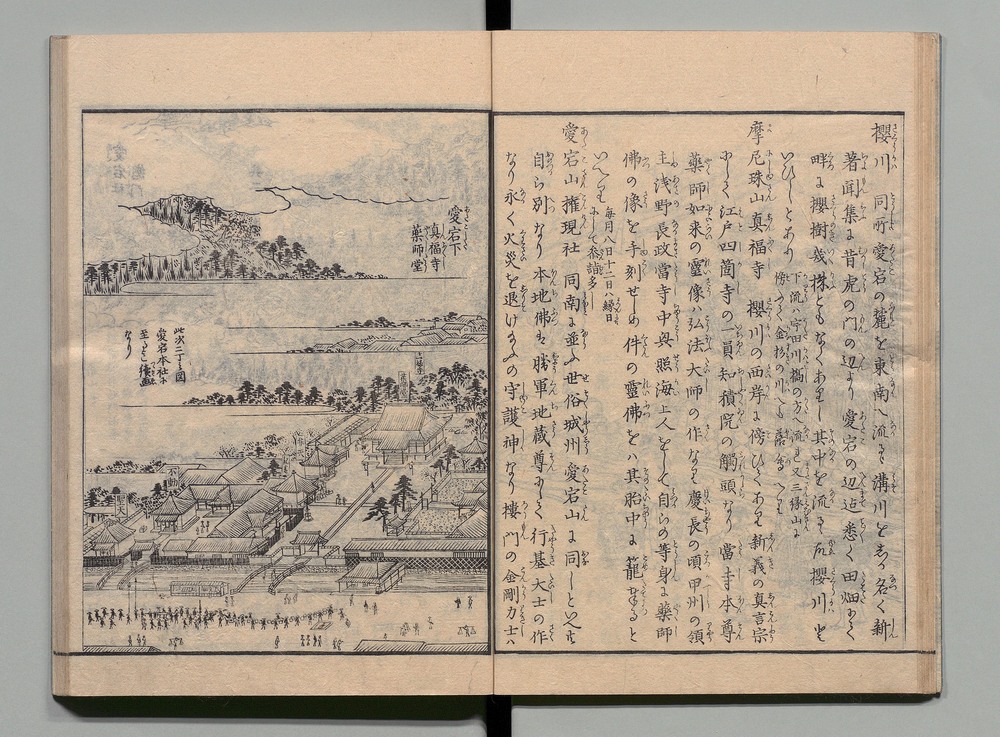 櫻川 同所愛宕の麓を東南へ流るゝ溝川をしか名く新
著聞集に昔虎の門の辺より愛宕の辺迄悉く田畑にて
畔に櫻樹幾株ともなくありし其中を流るゝ所櫻川と
いひしとあり
下流ハ宇田川橋の方へ流れ又三縁山に
傍ひて金杉の川へ落合へり
摩尼珠山真福寺 櫻川の西岸に傍ひてあり新義の真言宗
にして江戸四箇寺の一員知積院の觸頭なり當寺本尊
薬師如来の霊像ハ弘法大師の作なり慶長の頃甲州の領
主浅野長政當寺中興照海上人をして自らの等身に薬師
佛の像を手刻せしめ件の霊佛をハ其胎中に籠たると
いへり
毎月八日十二日ハ縁日
にして参詣多し
愛宕山権現社 同南に並ふ世俗城州愛宕山に同しといへとも
自ら別なり本地佛は勝軍地蔵尊にして行基大士の作
なり永く火災を退け給ふの守護神なり樓門の金剛力士ハ
愛宕下
真福寺
薬師堂
此次二丁の図
愛宕本社に
至りて続画
なり
不動